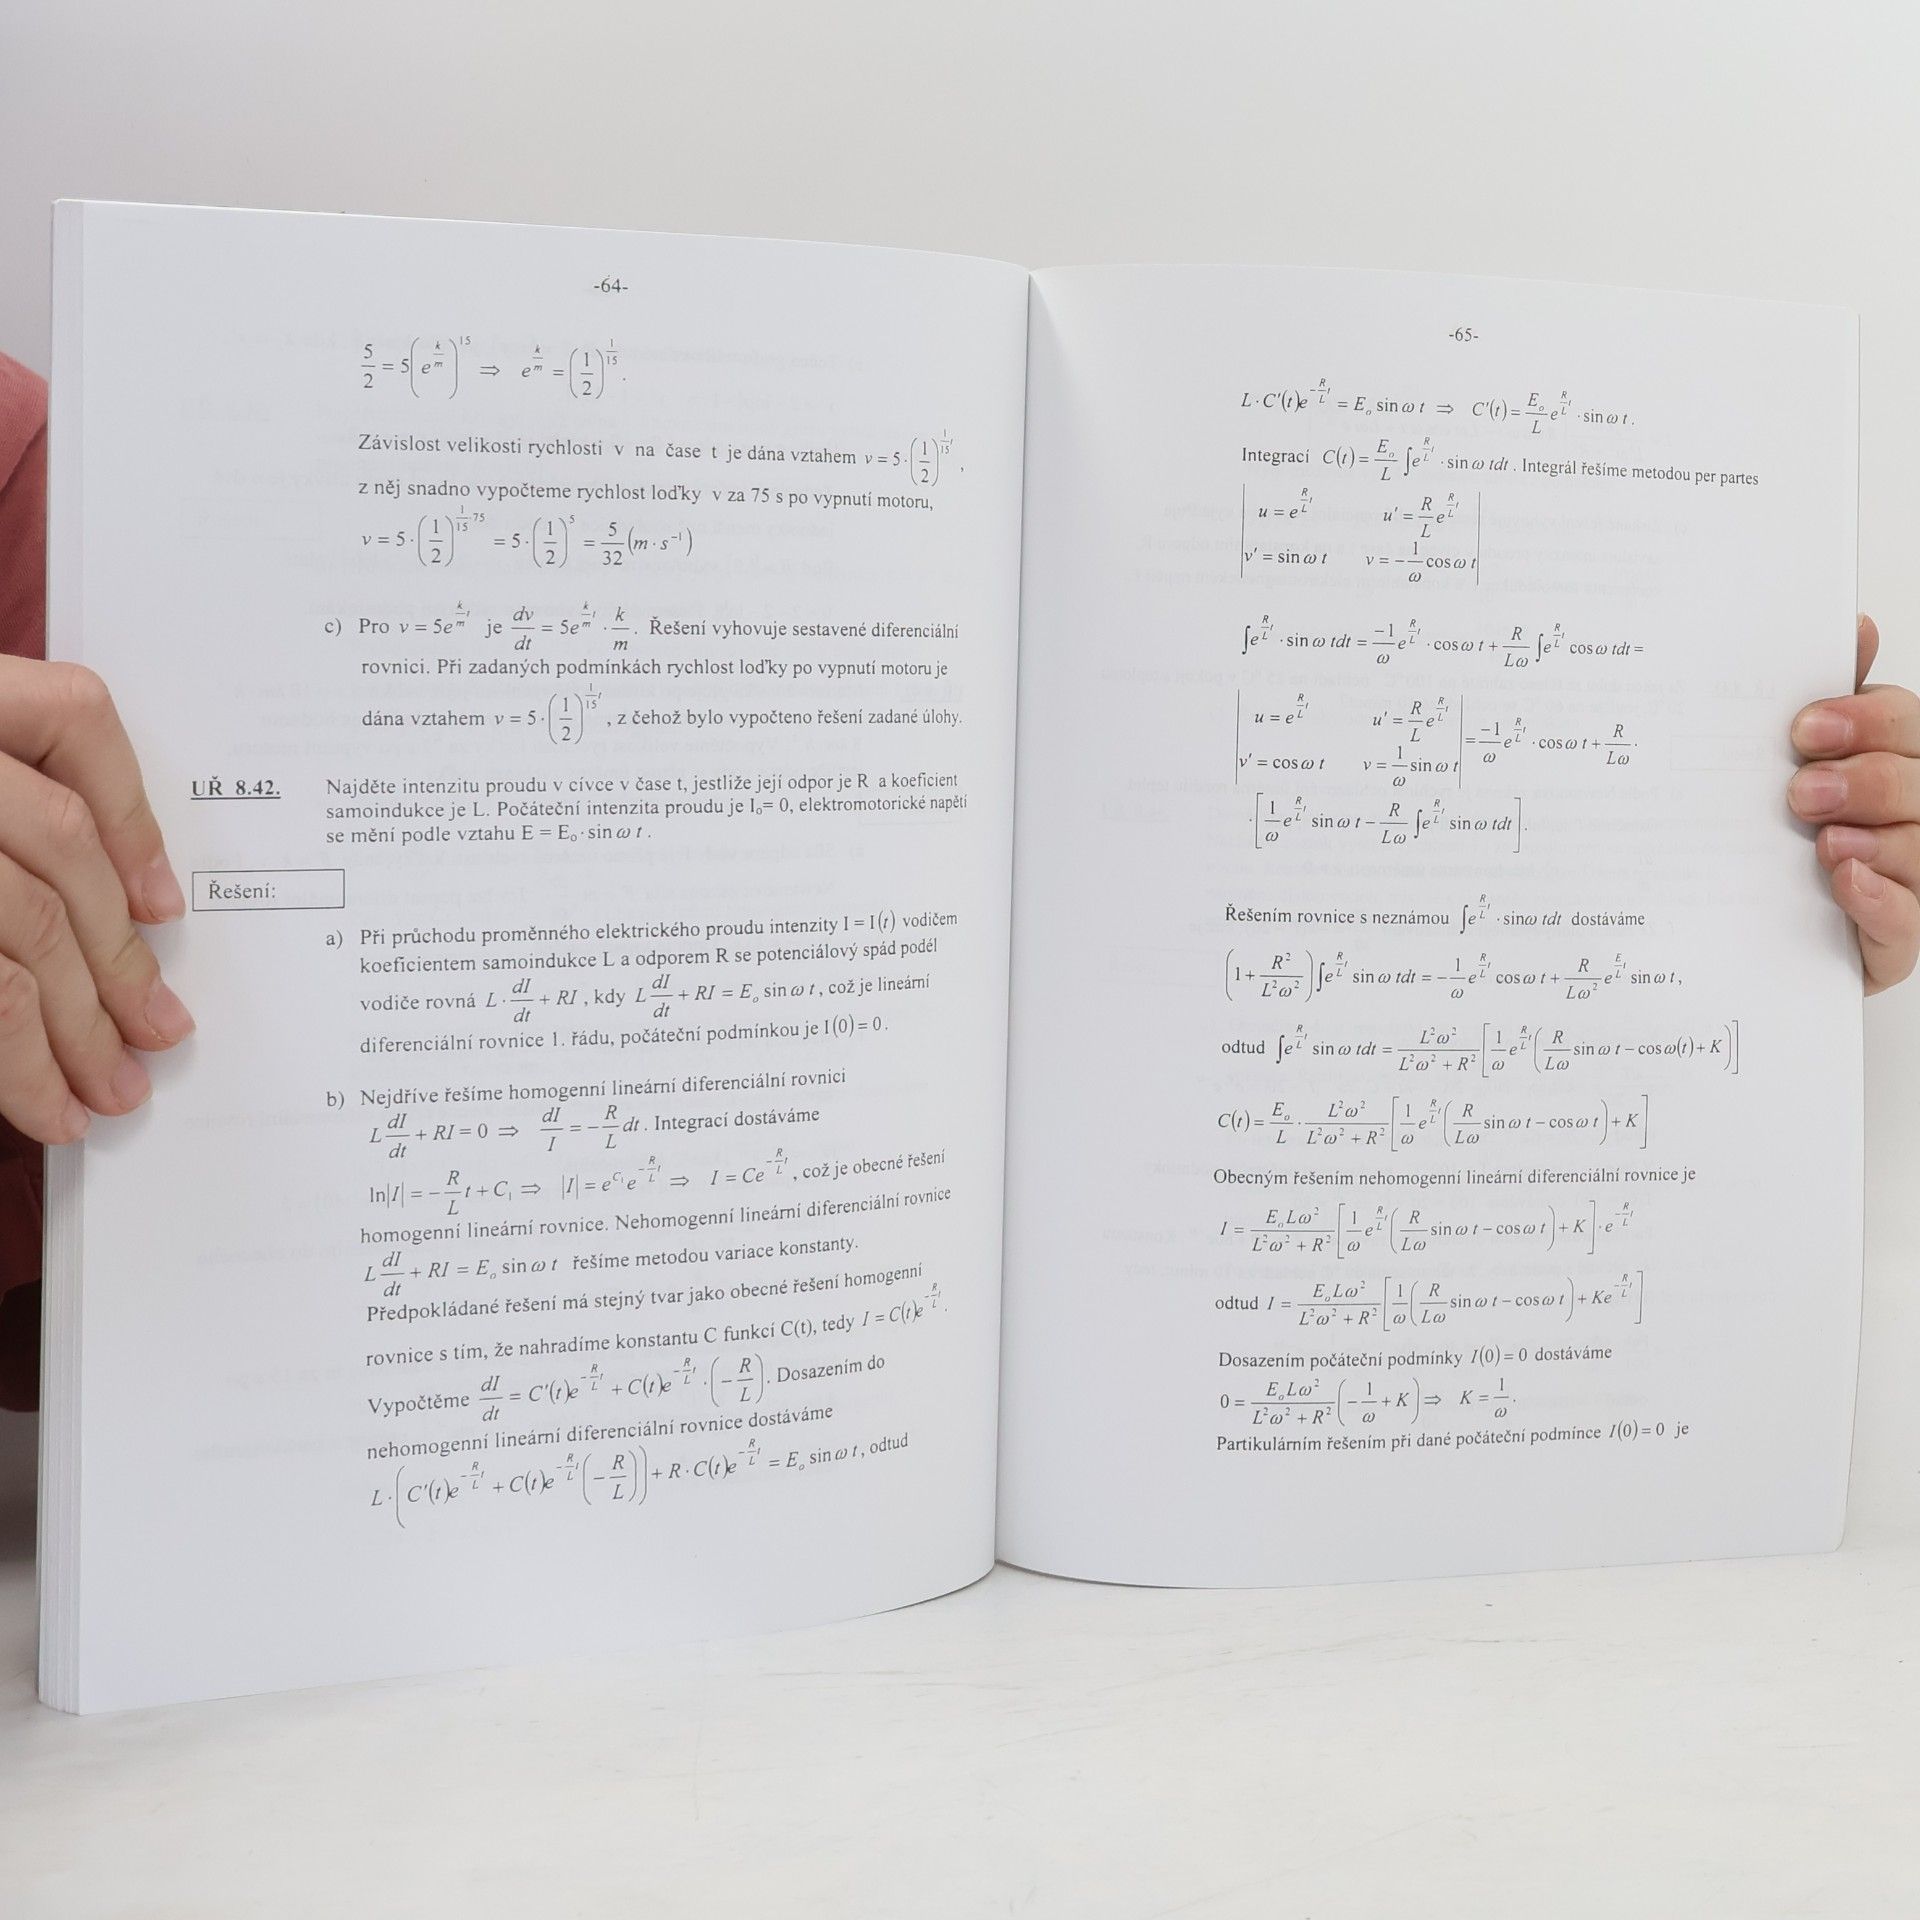 -64-
5/2 = 5(e^{k/m})^{15} ⇒ e^{k/m} = (1/2)^{1/15}.
Závislost velikosti rychlosti v na čase t je dána vztahem v = 5·(1/2)^{1/15 t},
z něj snadno vypočteme rychlost loďky v za 75 s po vypnutí motoru,
v = 5·(1/2)^{1/15·75} = 5·(1/2)^5 = 5/32 (m·s^{-1})
c) Pro v = 5e^{k/m t} je dv/dt = 5e^{k/m t}·k/m. Řešení vyhovuje sestavené diferenciální
rovnici. Při zadaných podmínkách rychlost loďky po vypnutí motoru je
dána vztahem v = 5·(1/2)^{1/15 t}, z čehož bylo vypočteno řešení zadané úlohy.
UŘ 8.42. Najděte intenzitu proudu v cívce v čase t, jestliže její odpor je R a koeficient
samoindukce je L. Počáteční intenzita proudu je I₀= 0, elektromotorické napětí
se mění podle vztahu E = E₀·sin ω t.
Řešení:
a) Při průchodu proměnného elektrického proudu intenzity I = I(t) vodičem
koeficientem samoindukce L a odporem R se potenciálový spád podél
vodiče rovná L·dI/dt + RI, kdy L dI/dt + RI = E₀ sin ω t, což je lineární
diferenciální rovnice 1. řádu, počáteční podmínkou je I(0) = 0.
b) Nejdříve řešíme homogenní lineární diferenciální rovnici
L dI/dt + RI = 0 ⇒ dI/I = -R/L dt. Integrací dostáváme
ln|I| = -R/L t + C₁ ⇒ |I| = e^{C₁}e^{-R/L t} ⇒ I = Ce^{-R/L t}, což je obecné řešení
homogenní lineární rovnice. Nehomogenní lineární diferenciální rovnice
L dI/dt + RI = E₀ sin ω t řešíme metodou variace konstanty.
Předpokládané řešení má stejný tvar jako obecné řešení homogenní
rovnice s tím, že nahradíme konstantu C funkcí C(t), tedy I = C(t)e^{-R/L t}.
Vypočtěme dI/dt = C'(t)e^{-R/L t} + C(t)e^{-R/L t}·(-R/L). Dosazením do
nehomogenní lineární diferenciální rovnice dostáváme
L·(C'(t)e^{-R/L t} + C(t)e^{-R/L t}(-R/L)) + R·C(t)e^{-R/L t} = E₀ sin ω t, odtud
-65-
L·C'(t)e^{-R/L t} = E₀ sin ω t ⇒ C'(t) = E₀/L e^{R/L t}·sin ω t.
Integrací C(t) = E₀/L ∫e^{R/L t}·sin ω tdt. Integrál řešíme metodou per partes
| u = e^{R/L t} u' = R/L e^{R/L t} |
| v' = sin ω t v = -1/ω cos ω t |
∫e^{R/L t}·sin ω tdt = -1/ω e^{R/L t}·cos ω t + R/Lω ∫e^{R/L t} cos ω tdt =
| u = e^{R/L t} u' = R/L e^{R/L t} |
| v' = cos ω t v = 1/ω sin ω t | = -1/ω e^{R/L t}·cos ω t + R/Lω·
·[1/ω e^{R/L t} sin ω t - R/Lω ∫e^{R/L t} sin ω tdt].
Řešením rovnice s neznámou ∫e^{R/L t}·sinω tdt dostáváme
(1 + R²/L²ω²)∫e^{R/L t} sin ω tdt = -1/ω e^{R/L t} cos ω t + R/Lω² e^{E/L t} sin ω t,
odtud ∫e^{R/L t} sin ω tdt = L²ω²/(L²ω² + R²) [1/ω e^{R/L t}(R/Lω sin ω t - cos ω(t) + K)]
C(t) = E₀/L · L²ω²/(L²ω² + R²) [1/ω e^{R/L t}(R/Lω sin ω t - cos ω t) + K]
Obecným řešením nehomogenní lineární diferenciální rovnice je
I = E₀Lω²/(L²ω² + R²) [1/ω e^{R/L t}(R/Lω sin ω t - cos ω t) + K]·e^{-R/L t}
odtud I = E₀Lω²/(L²ω² + R²) [1/ω (R/Lω sin ω t - cos ω t) + Ke^{-R/L t}]
Dosazením počáteční podmínky I(0) = 0 dostáváme
0 = E₀Lω²/(L²ω² + R²) (-1/ω + K) ⇒ K = 1/ω.
Partikulárním řešením při dané počáteční podmínce I(0) = 0 je